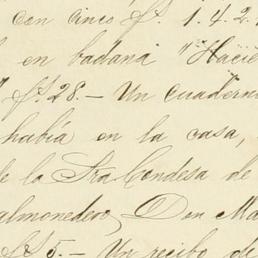 con cinco fs. 1.4.2.
en badana "Hacie
" fs. 28. — Un cuaderno
había en la casa,
de la Sra Condesa de
almonedero, Don Ma
fs 5. — Un recibo de